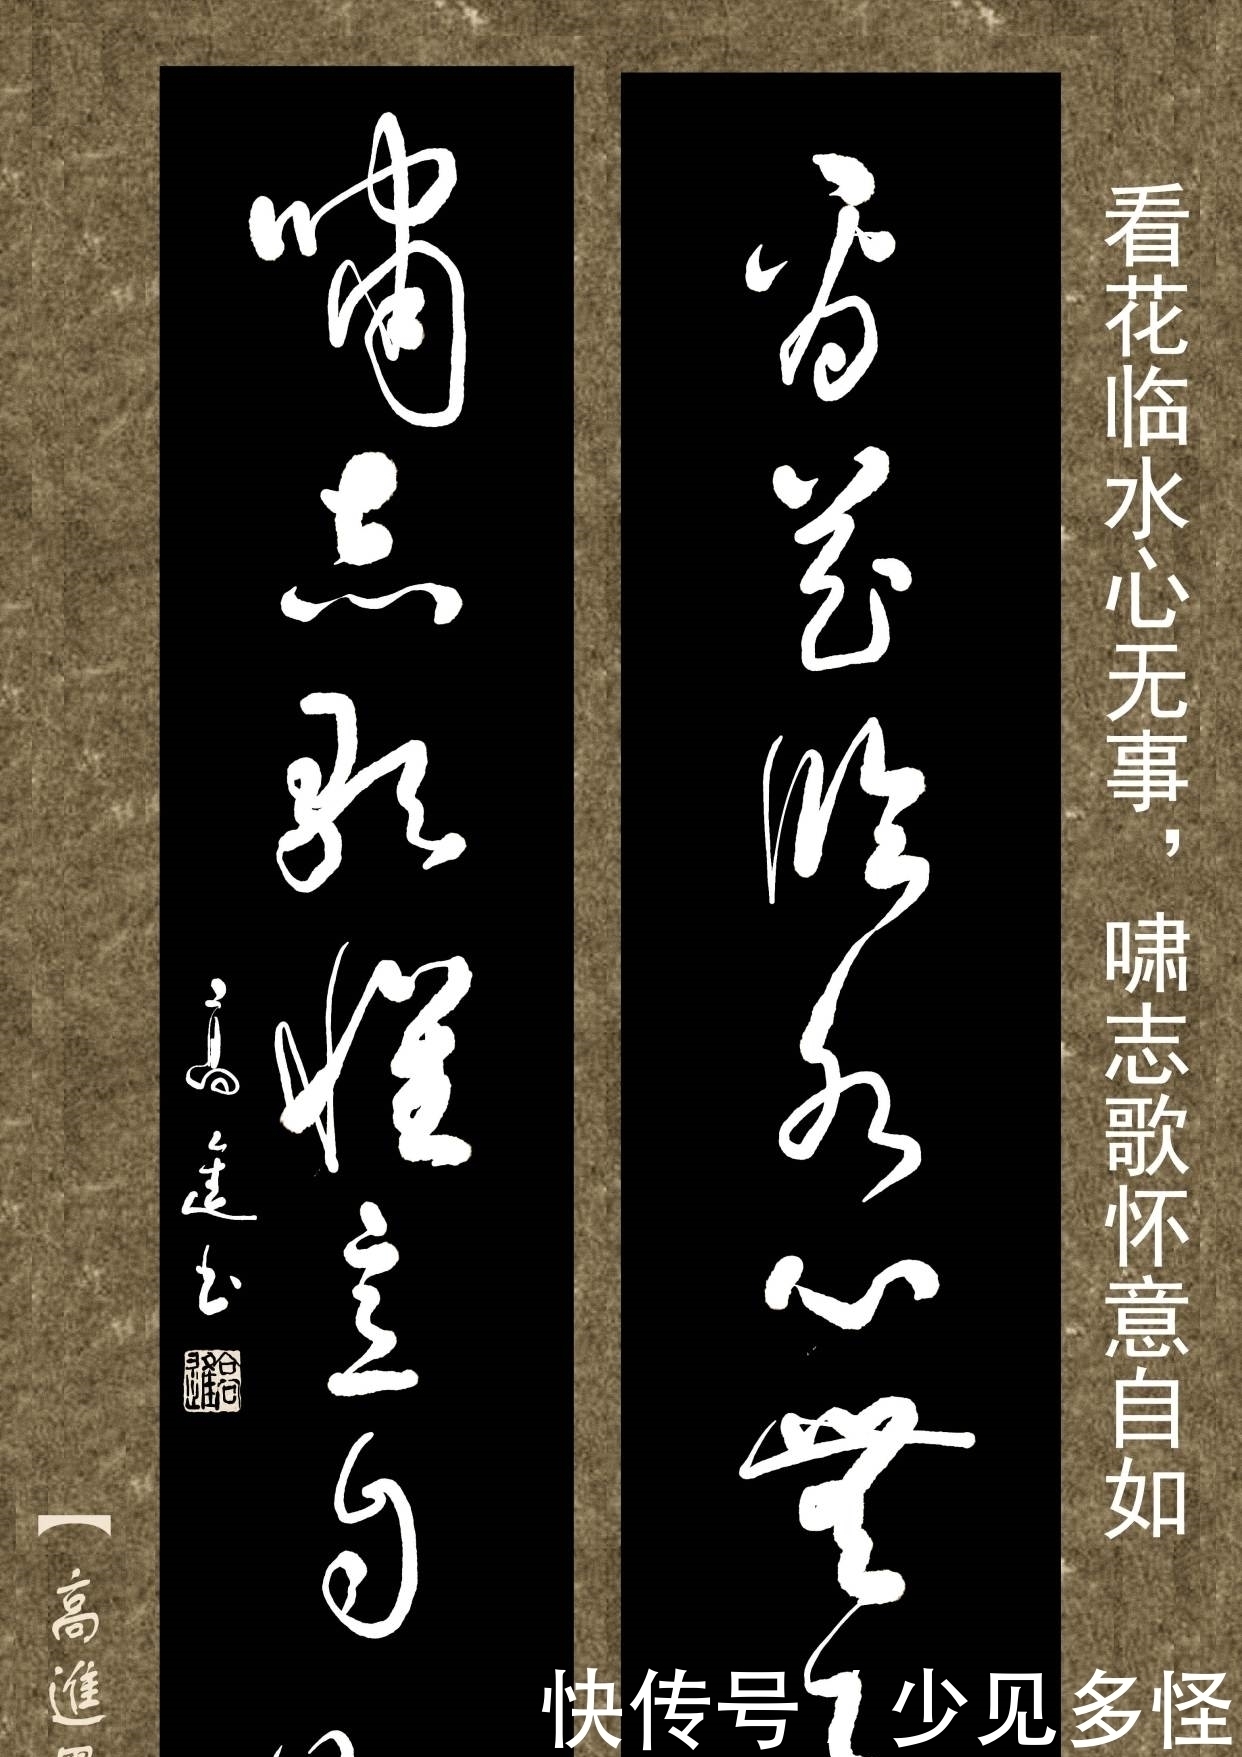 看花临水心无事，啸志歌怀意自如
看花臨水心無
嘯志歌懷意自
高進书
【高進
快传号 少见多怪